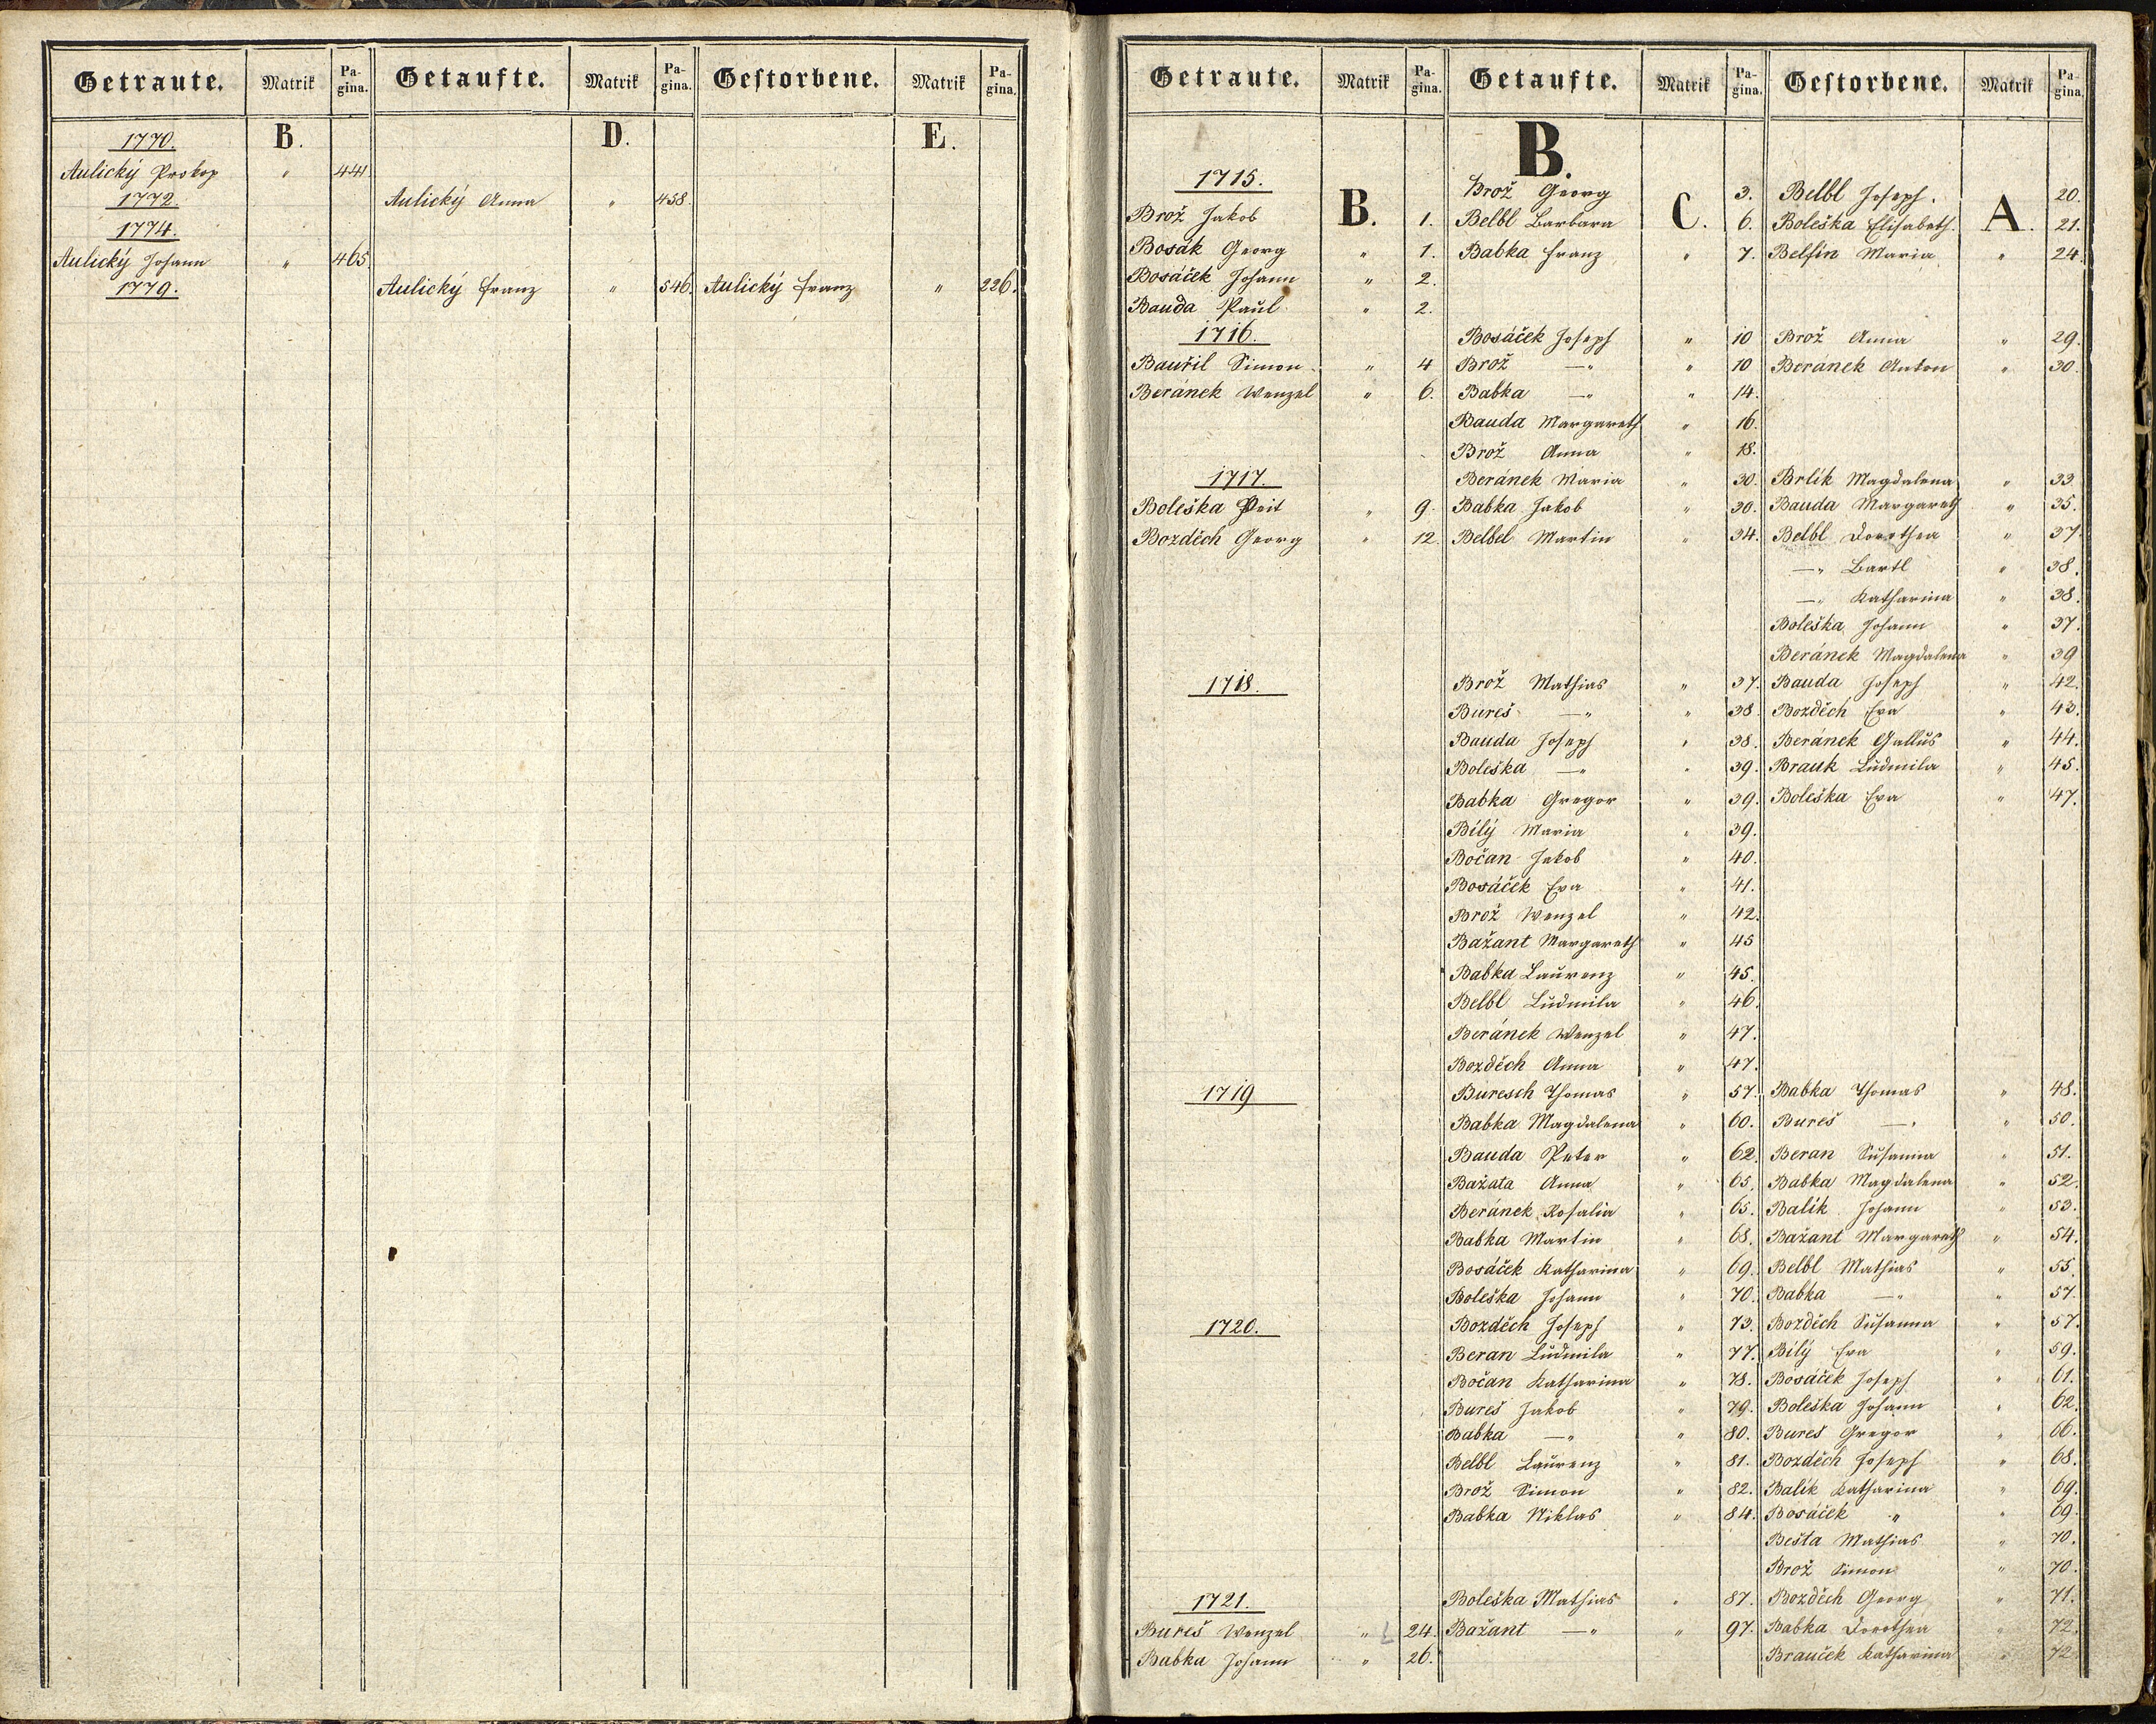 Getraute. Matrik Pagina. Getaufte. Matrik Pagina. Gestorbene. Matrik Pagina.
1770. B. D. E.
Aulický Prokop " 441
1772. Aulický Anna " 458.
1774.
Aulický Johann " 465.
1779. Aulický Franz " 546. Aulický Franz " 226.
Getraute. Matrik Pagina. Getaufte. Matrik Pagina. Gestorbene. Matrik Pagina.
B.
1715. Brož Georg 3. Belbl Joseph. 20.
Brož Jakob B. 1. Belbl Barbara C. 6. Boleška Elisabeth A. 21.
Bosák Georg " 1. Babka Franz " 7. Belfin Maria " 24.
Bosáček Johann " 2.
Bauda Paul " 2.
1716. Bosáček Joseph " 10 Brož Anna " 29.
Bauřil Simon " 4 Brož —" " 10 Beránek Anton " 30.
Beránek Wenzel " 6. Babka —" " 14.
Bauda Margareth " 16.
Brož Anna " 18.
1717. Beránek Maria " 30. Brlik Magdalena " 33
Boleška Veit " 9. Babka Jakob " 30. Bauda Margareth " 35.
Bozděch Georg " 12. Belbel Martin " 34. Belbl Dorothea " 37
—" Bartl " 38.
—" Katharina " 38.
Boleška Johann " 37.
Beránek Magdalena " 39
1718. Brož Mathias " 37. Bauda Joseph " 42.
Bureš —" " 38. Bozděch Eva " 43.
Bauda Joseph " 38. Beránek Gallus " 44.
Boleška —" " 39. Brauk Ludmila " 45.
Babka Gregor " 39. Boleška Eva " 47.
Bílý Maria " 39.
Bočan Jakob " 40.
Bosáček Eva " 41.
Brož Wenzel " 42.
Bažant Margareth " 45
Babka Laurenz " 45.
Belbl Ludmila " 46.
Beránek Wenzel " 47.
Bozděch Anna " 47.
1719 Buresch Thomas " 57. Babka Thomas " 48.
Babka Magdalena " 60. Bureš —" " 50.
Bauda Peter " 62. Beran Susanna " 51.
Bažata Anna " 65. Babka Magdalena " 52.
Beránek Rosalia " 65. Balík Johann " 53.
Babka Martin " 68. Bažant Margareth " 54.
Bosáček Katharina " 69. Belbl Mathias " 55.
Boleška Johann " 70. Babka —" " 57.
1720. Bozděch Joseph " 73. Bozděch Susanna " 57.
Beran Ludmila " 77. Bílý Eva " 59.
Bočan Katharina " 78. Bosáček Joseph " 61.
Bureš Jakob " 79. Boleška Johann " 62.
Babka —" " 80. Bureš Gregor " 66.
Belbl Laurenz " 81. Bozděch Joseph " 68.
Brož Simon " 82. Balík Katharina " 69.
Babka Niklas " 84. Bosáček " " 69.
Bešta Mathias " 70.
Brož Simon " 70.
1721. Boleška Mathias " 87. Bozděch Georg " 71.
Bureš Wenzel " 24. Bažant —" " 97. Babka Dorothea " 72.
Babka Johann " 26. Brauček Katharina " 72